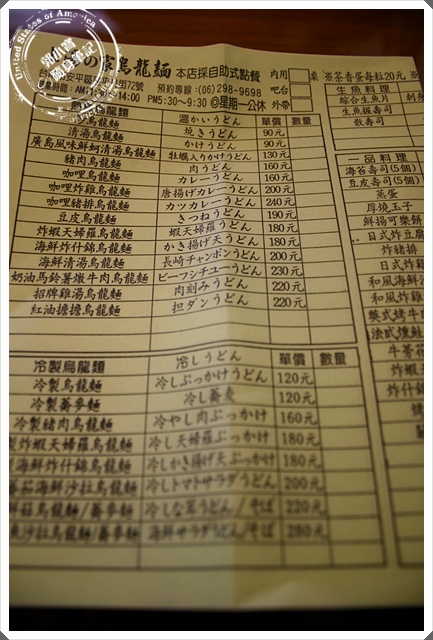 United States of America
の家烏龍麵 本店採自助式點餐 內用 桌 ※茶香蛋每粒20元 ※
街72號 預約專線:(06) 298-9698 吧台
14:00 PM5:30~9:30 @星期一公休 外帶
溫かいうどん 單價 數量
烏龍麵 焼きうどん 90元
清湯烏龍麵 かけうどん 90元
廣島風味鮮蚵清湯烏龍麵 牡蠣入りかけうどん 130元
豬肉烏龍麵 肉うどん 160元
咖哩烏龍麵 カレーうどん 160元
咖哩炸雞烏龍麵 唐揚げカレーうどん 200元
咖哩豬排烏龍麵 カツカレーうどん 240元
豆皮烏龍麵 きつねうどん 190元
炸蝦天婦羅烏龍麵 蝦天婦羅うどん 180元
海鮮炸什錦烏龍麵 かき揚げ天うどん 180元
海鮮清湯烏龍麵 長崎チャンポンうどん 200元
奶油馬鈴薯燉牛肉烏龍麵 ビーフシチューうどん 230元
招牌雞湯烏龍麵 肉刻みうどん 220元
紅油擔擔烏龍麵 担ダンうどん 220元
冷製烏龍麵 冷しうどん 單價 數量
冷製烏龍麵 冷しぶっかけうどん 120元
冷製蕎麥麵 冷し蕎麦 120元
冷製豬肉烏龍麵 冷やし肉ぶっかけ 160元
製炸蝦天婦羅烏龍麵 冷し天婦羅ぶっかけ 180元
製海鮮炸什錦烏龍麵 冷しかき揚げ天ぶっかけ 180元
蕃茄海鮮沙拉烏龍麵 冷しトマトサラダうどん 200元
菇烏龍麵/蕎麥麵 冷しな茸うどん/そば 220元
沙拉烏龍麵/蕎麥麵 海鮮サラダうどん/そば 280元
生魚料理
綜合生魚片
生魚握壽司
散壽司
一品料理
海苔壽司(5個)
豆皮壽司(5個)
蒸蛋
厚燒玉子
鮮揚可樂餅
日式炸豆腐
炸豬排
日式炸雞
和風海鮮
和風炸雞
英式烤牛肉
法式燻鮭
牛蒡
炸什錦